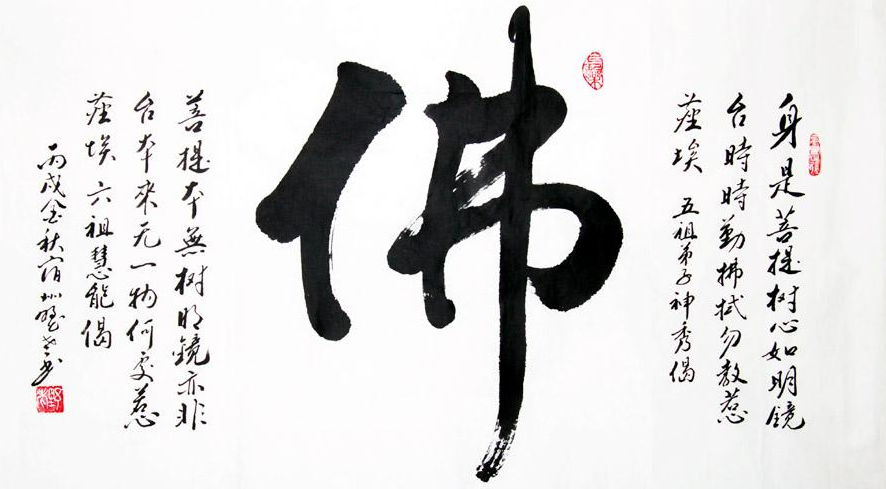 身是菩提树心如明镜
台時時勤拂拭勿教惹
蓙埃 五祖弟子神秀偈
佛
菩提本無树明鏡亦非
台本來无一物何处惹
蓙埃 六祖慧能偈
丙戌金秋宿州